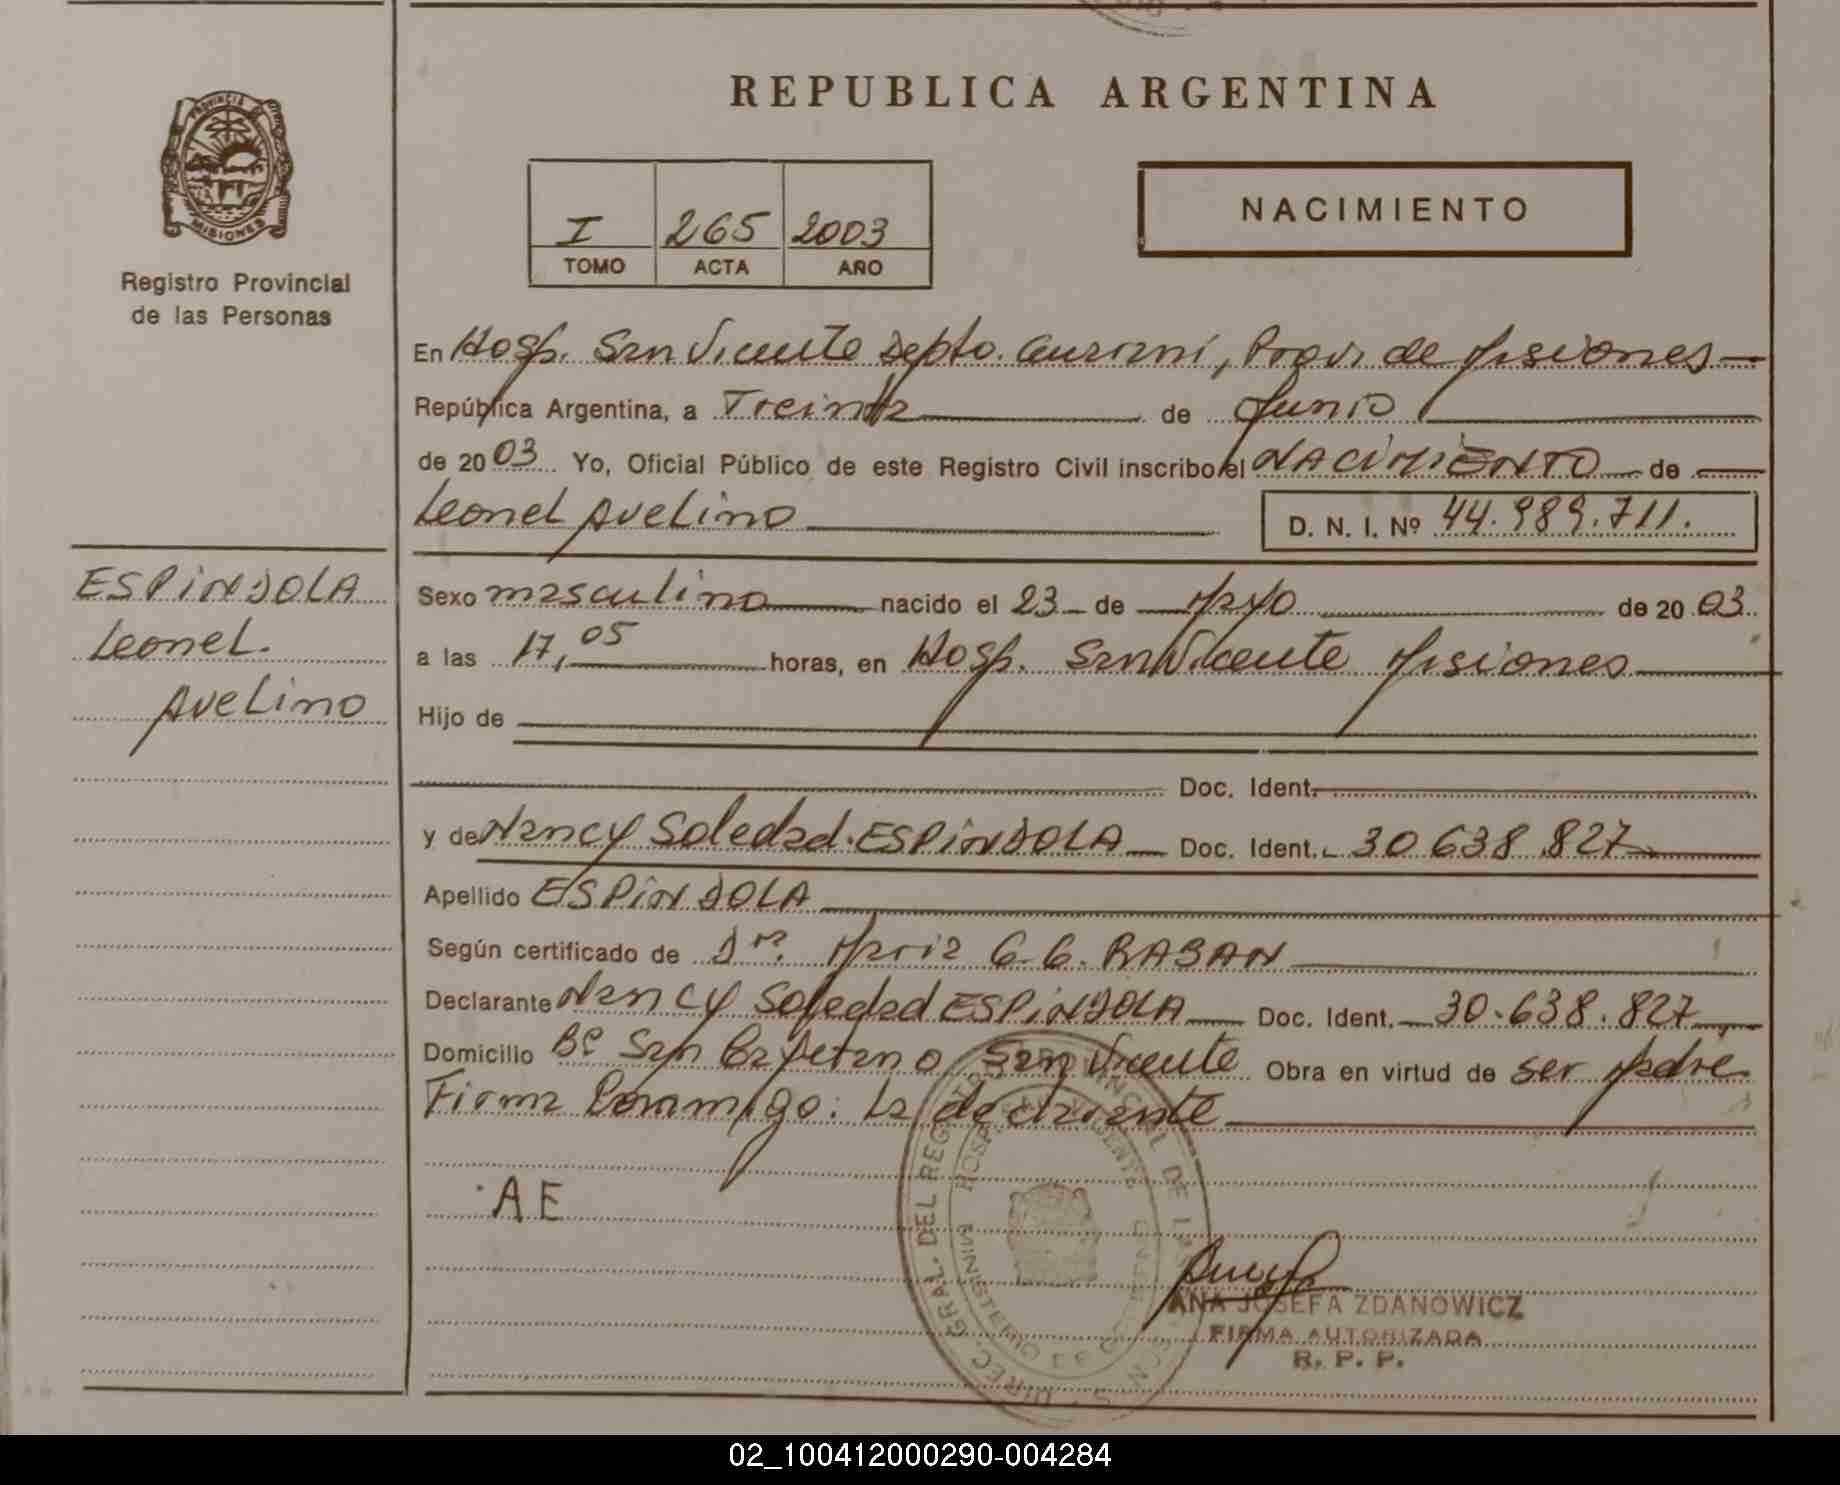 PROVINCIA DE
MISIONES
Registro Provincial
de las Personas
REPUBLICA ARGENTINA
I 265 2003
TOMO ACTA AÑO
NACIMIENTO
En Hosp. San Vicente Depto. Guaraní, Prov. de Misiones
República Argentina, a Treinta de Junio
de 2003 Yo, Oficial Público de este Registro Civil inscribo el NACIMIENTO de
Leonel Avelino
D. N. I. Nº 44.989.711.
ESPINDOLA
Leonel.
Avelino
Sexo masculino nacido el 23 de Mayo de 2003
a las 17,05 horas, en Hosp. San Vicente Misiones
Hijo de
Doc. Ident.
y de Nancy Soledad ESPINDOLA Doc. Ident. 30 638 827
Apellido ESPINDOLA
Según certificado de Dra. Maria G. G.
Declarante Nancy Soledad ESPINDOLA Doc. Ident. 30.638.827
Domicilio Bº San Cayetano San Vicente Obra en virtud de ser Madre
Firma Conmigo: La declarante
AE
DIREC. GRAL. DEL REGISTRO PROVINCIAL DE LAS
HOSP. SAN VICENTE
MINISTERIO DE GOBIERNO
ANA JOSEFA ZDANOWICZ
FIRMA AUTORIZADA
R. P. P.
02_100412000290-004284